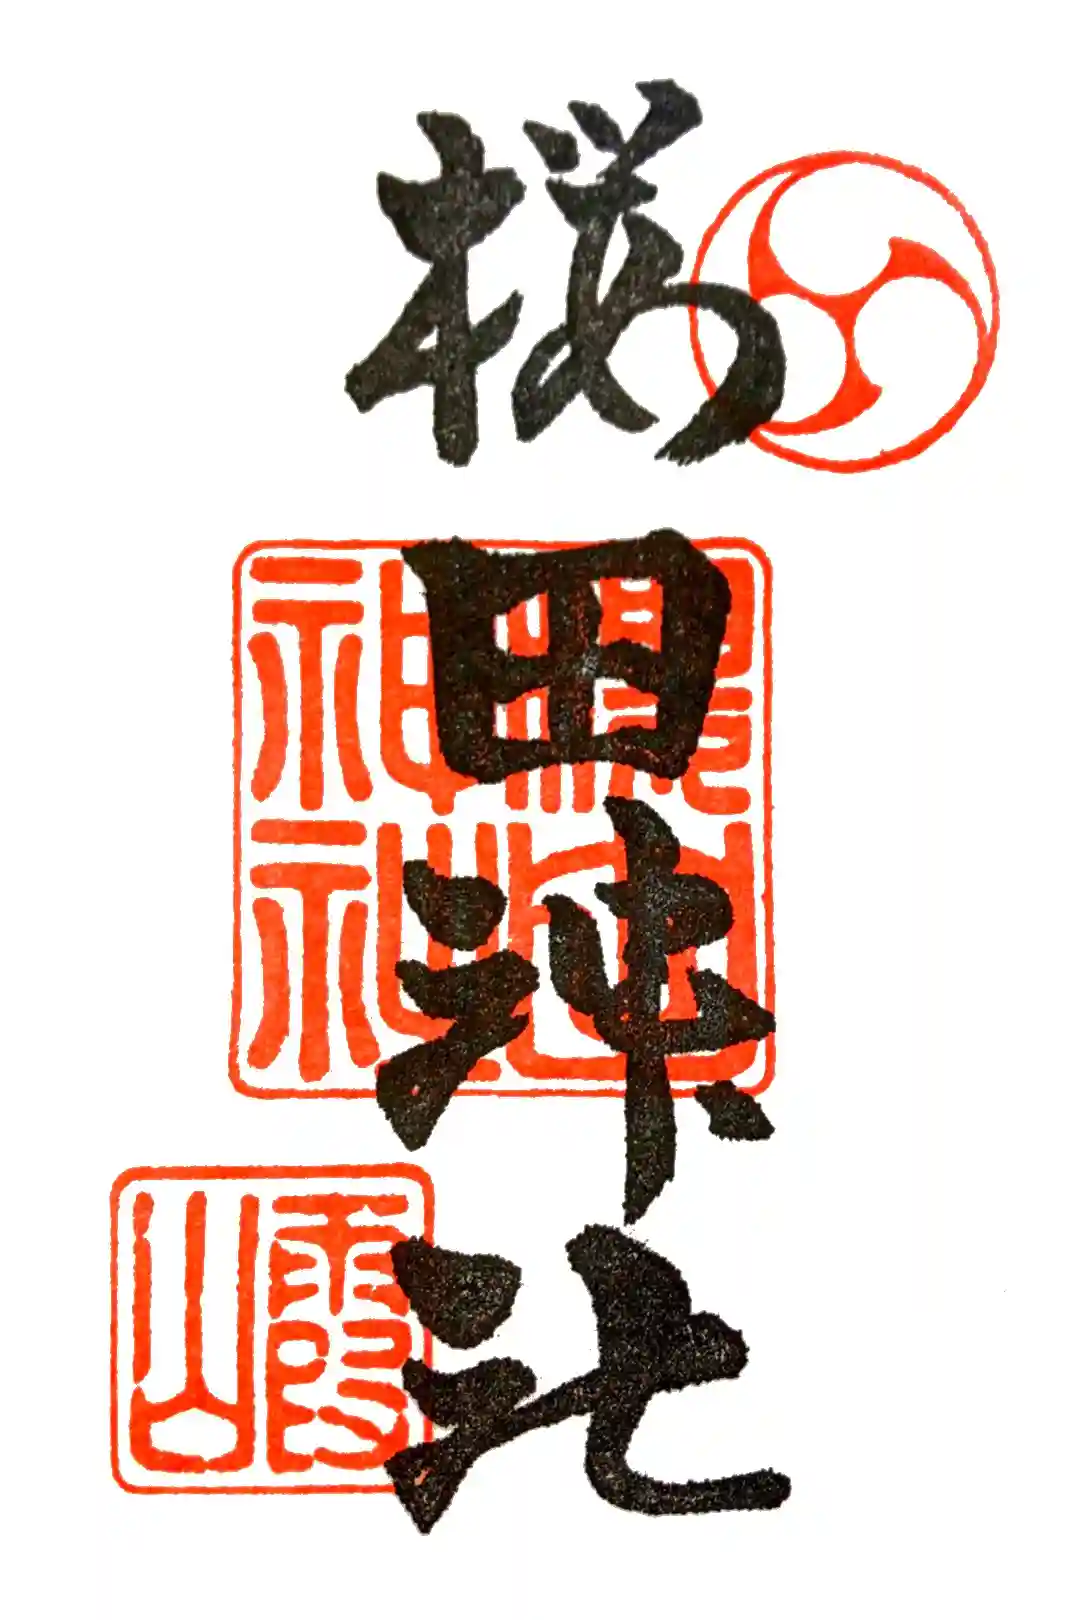 桜田神社
櫻田神社
霞山